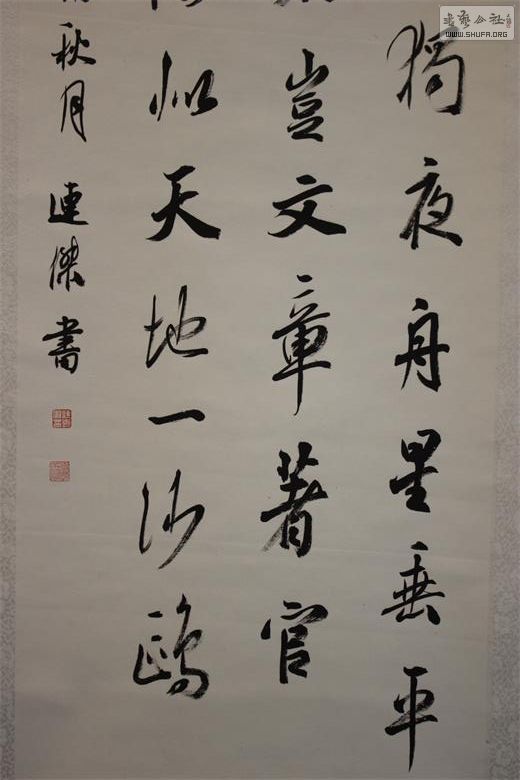 獨夜舟星垂平
豈文章著官
似天地一沙鷗
秋月 連傑書
书艺公社
www.SHUFA.ORG